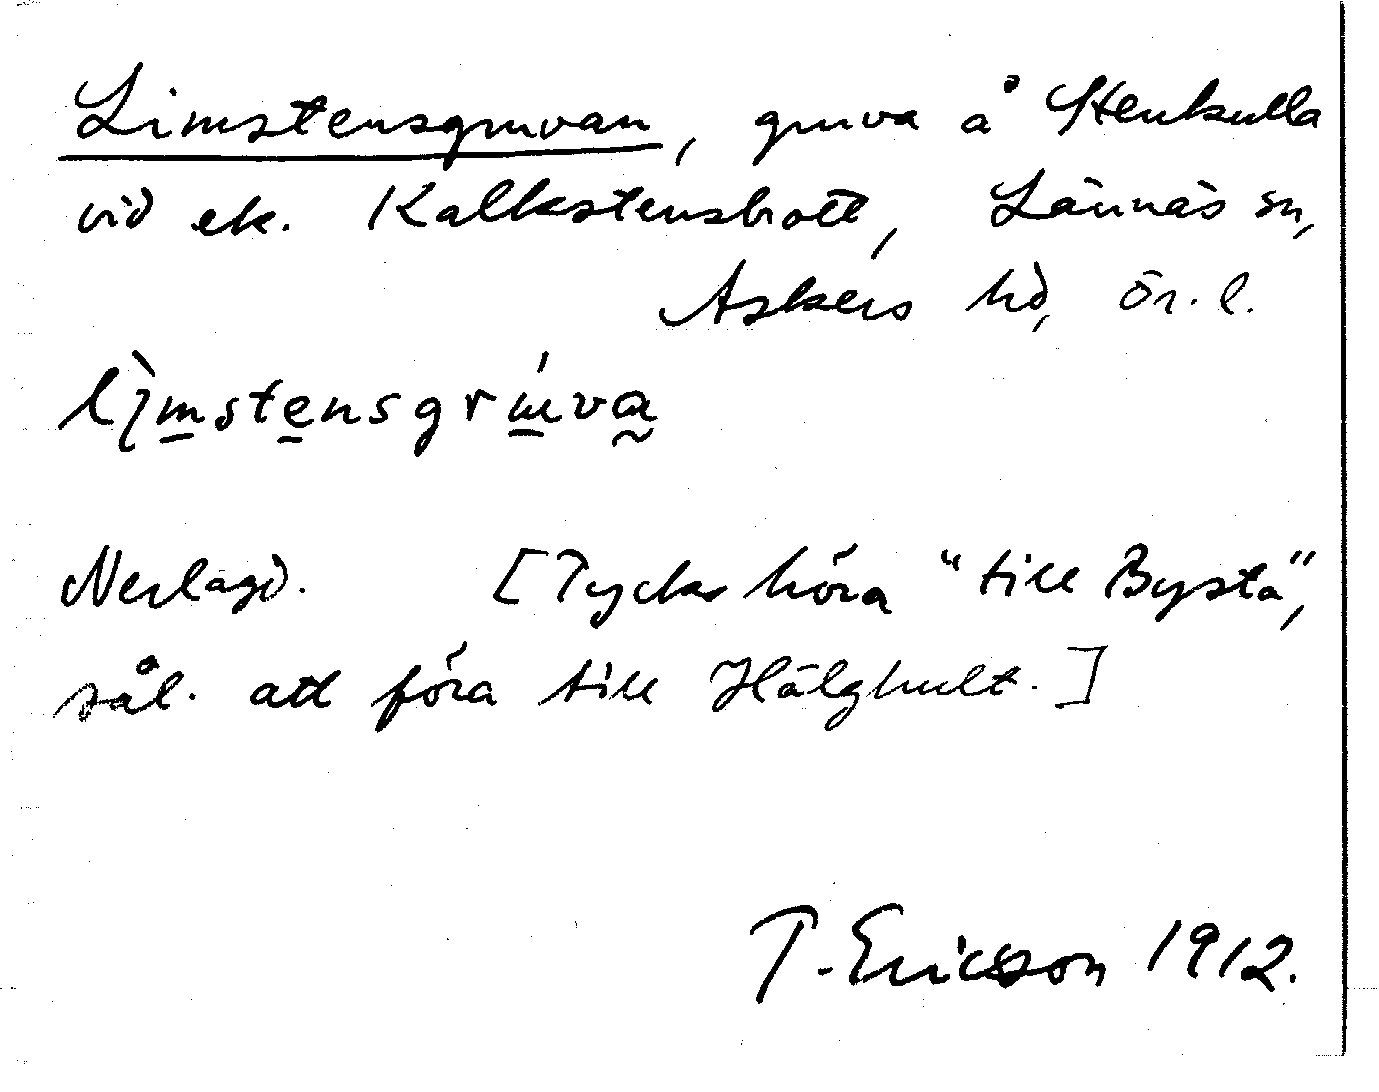 Limstensgruvan, gruva å Stenkulla
vid ek. Kalkstensbrott, Lännäs sn,
Askers hd, Ör. l.
limstensgruva
Nerlagd. [Tycks höra "till Bysta",
sål. att föra till Hälghult.]
T. Ericsson 1912.